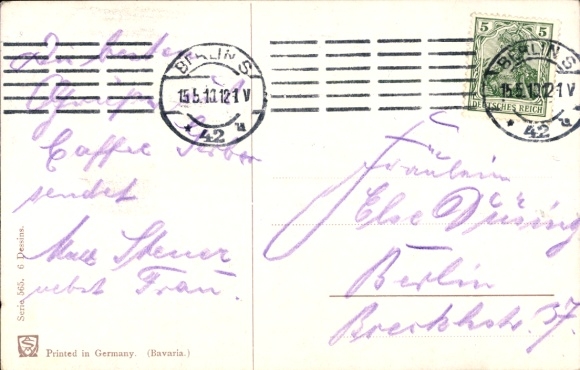 Die besten
Grüße
Caffee
sendet
Max Steuer
nebst Frau.
Serie 565. 6 Dessins.
Printed in Germany. (Bavaria.)
BERLIN S
15.5.10.12-1 V
* 42 a
5 5
DEUTSCHES REICH
BERLIN S
15.5.10.12-1 V
* 42 a
Fräulein
Else Düsing
Berlin
37.